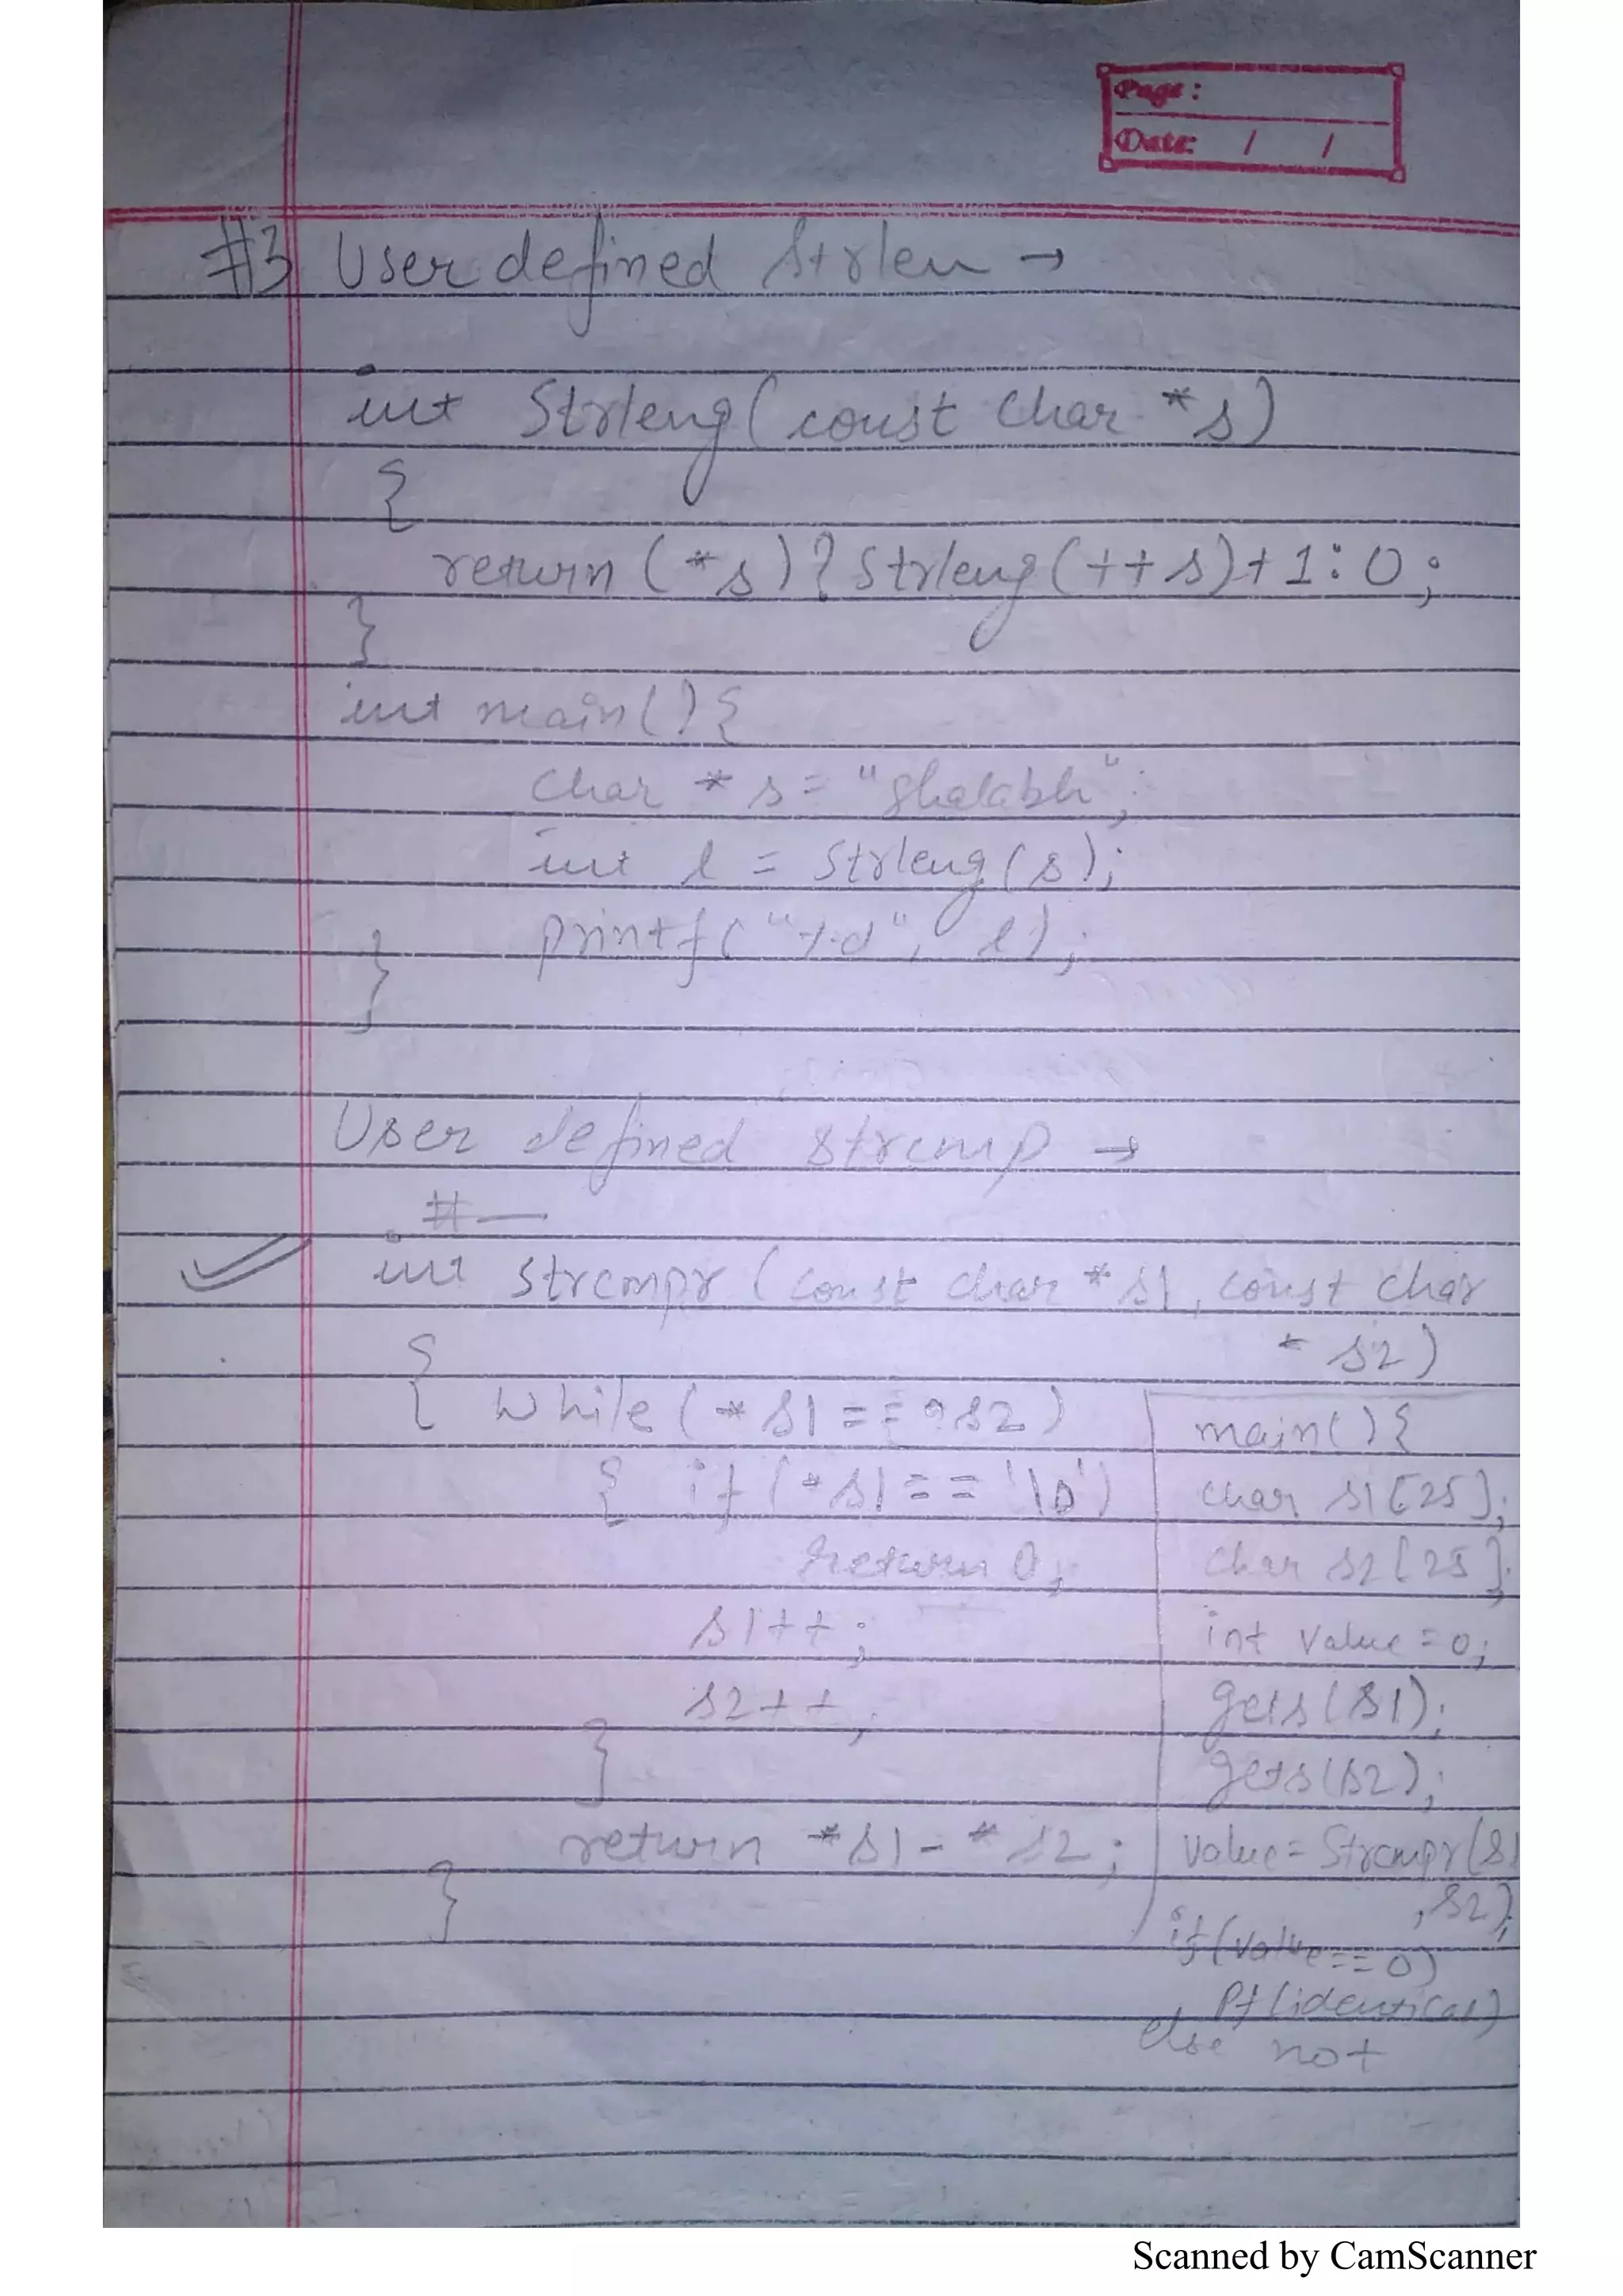 Page :
Date: / /
#3 User defined strlen →
int Strleng(const char *s)
{
return (*s)?strleng(++s)+1:0;
}
int main(){
char *s = "shalabh";
int l = strleng(s);
printf("%d", l);
}
User defined strcmp →
#
int strcmpr (const char *s1, const char
* s2)
{ while(*s1==*s2)
{ if(*s1=='\0')
return 0;
s1++;
s2++;
}
return *s1-*s2;
}
main(){
char s1[25];
char s2[25];
int value=0;
gets(s1);
gets(s2);
value=Strcmpr(s1
,s2);
if(value==0)
Pf(identical)
else not
Scanned by CamScanner